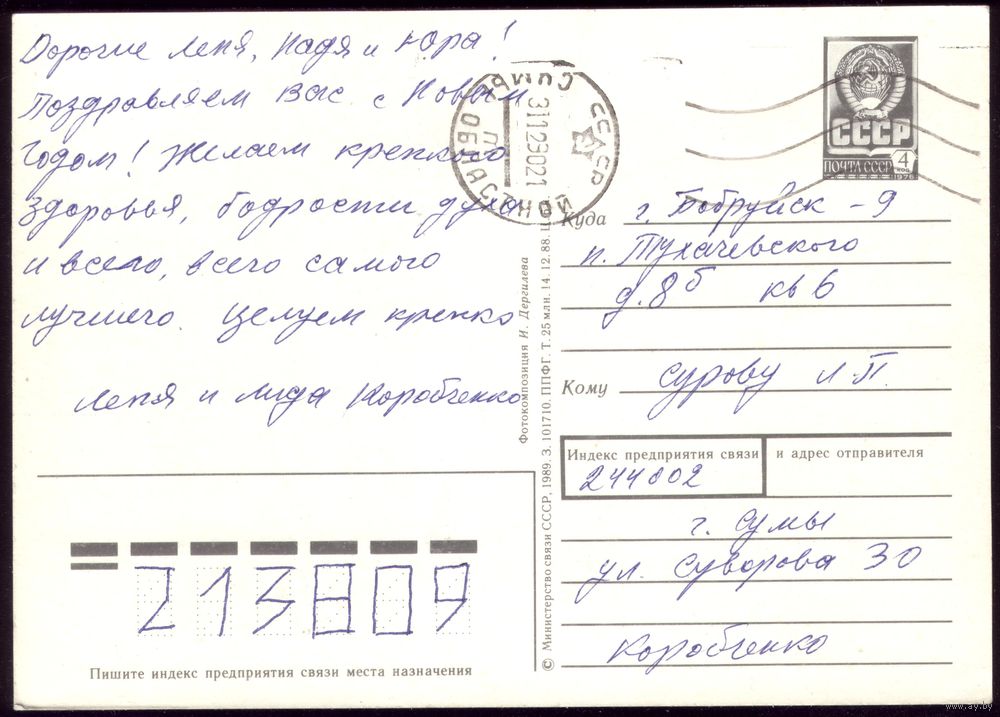 Дорогие Леня, Надя и Юра!
Поздравляем Вас с Новым
Годом! Желаем крепкого
здоровья, бодрости духа
и всего, всего самого
лучшего. Целуем крепко
Леня и Лида Коробченко
СУМЫ
ОБЛАСНОЙ
СССР
31129021
СССР
ПОЧТА СССР
4
КОП
1976
Куда
г. Бобруйск - 9
п. Тухачевского
д. 8б кв 6
Кому
Сурову Л. П.
Индекс предприятия связи и адрес отправителя
244002
г. Сумы
ул. Суворова 30
Коробченко
213809
Пишите индекс предприятия связи места назначения
Фотокомпозиция И. Дергилева
© Министерство связи СССР, 1989. З. 101710. ППФГ. Т. 25 млн. 14. 12. 88. Ц
www.ay.by